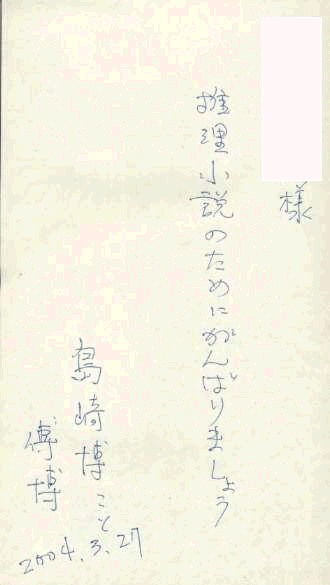 様
推理小説のためにがんばりましょう
島崎博こと
傅博
2004.3.27